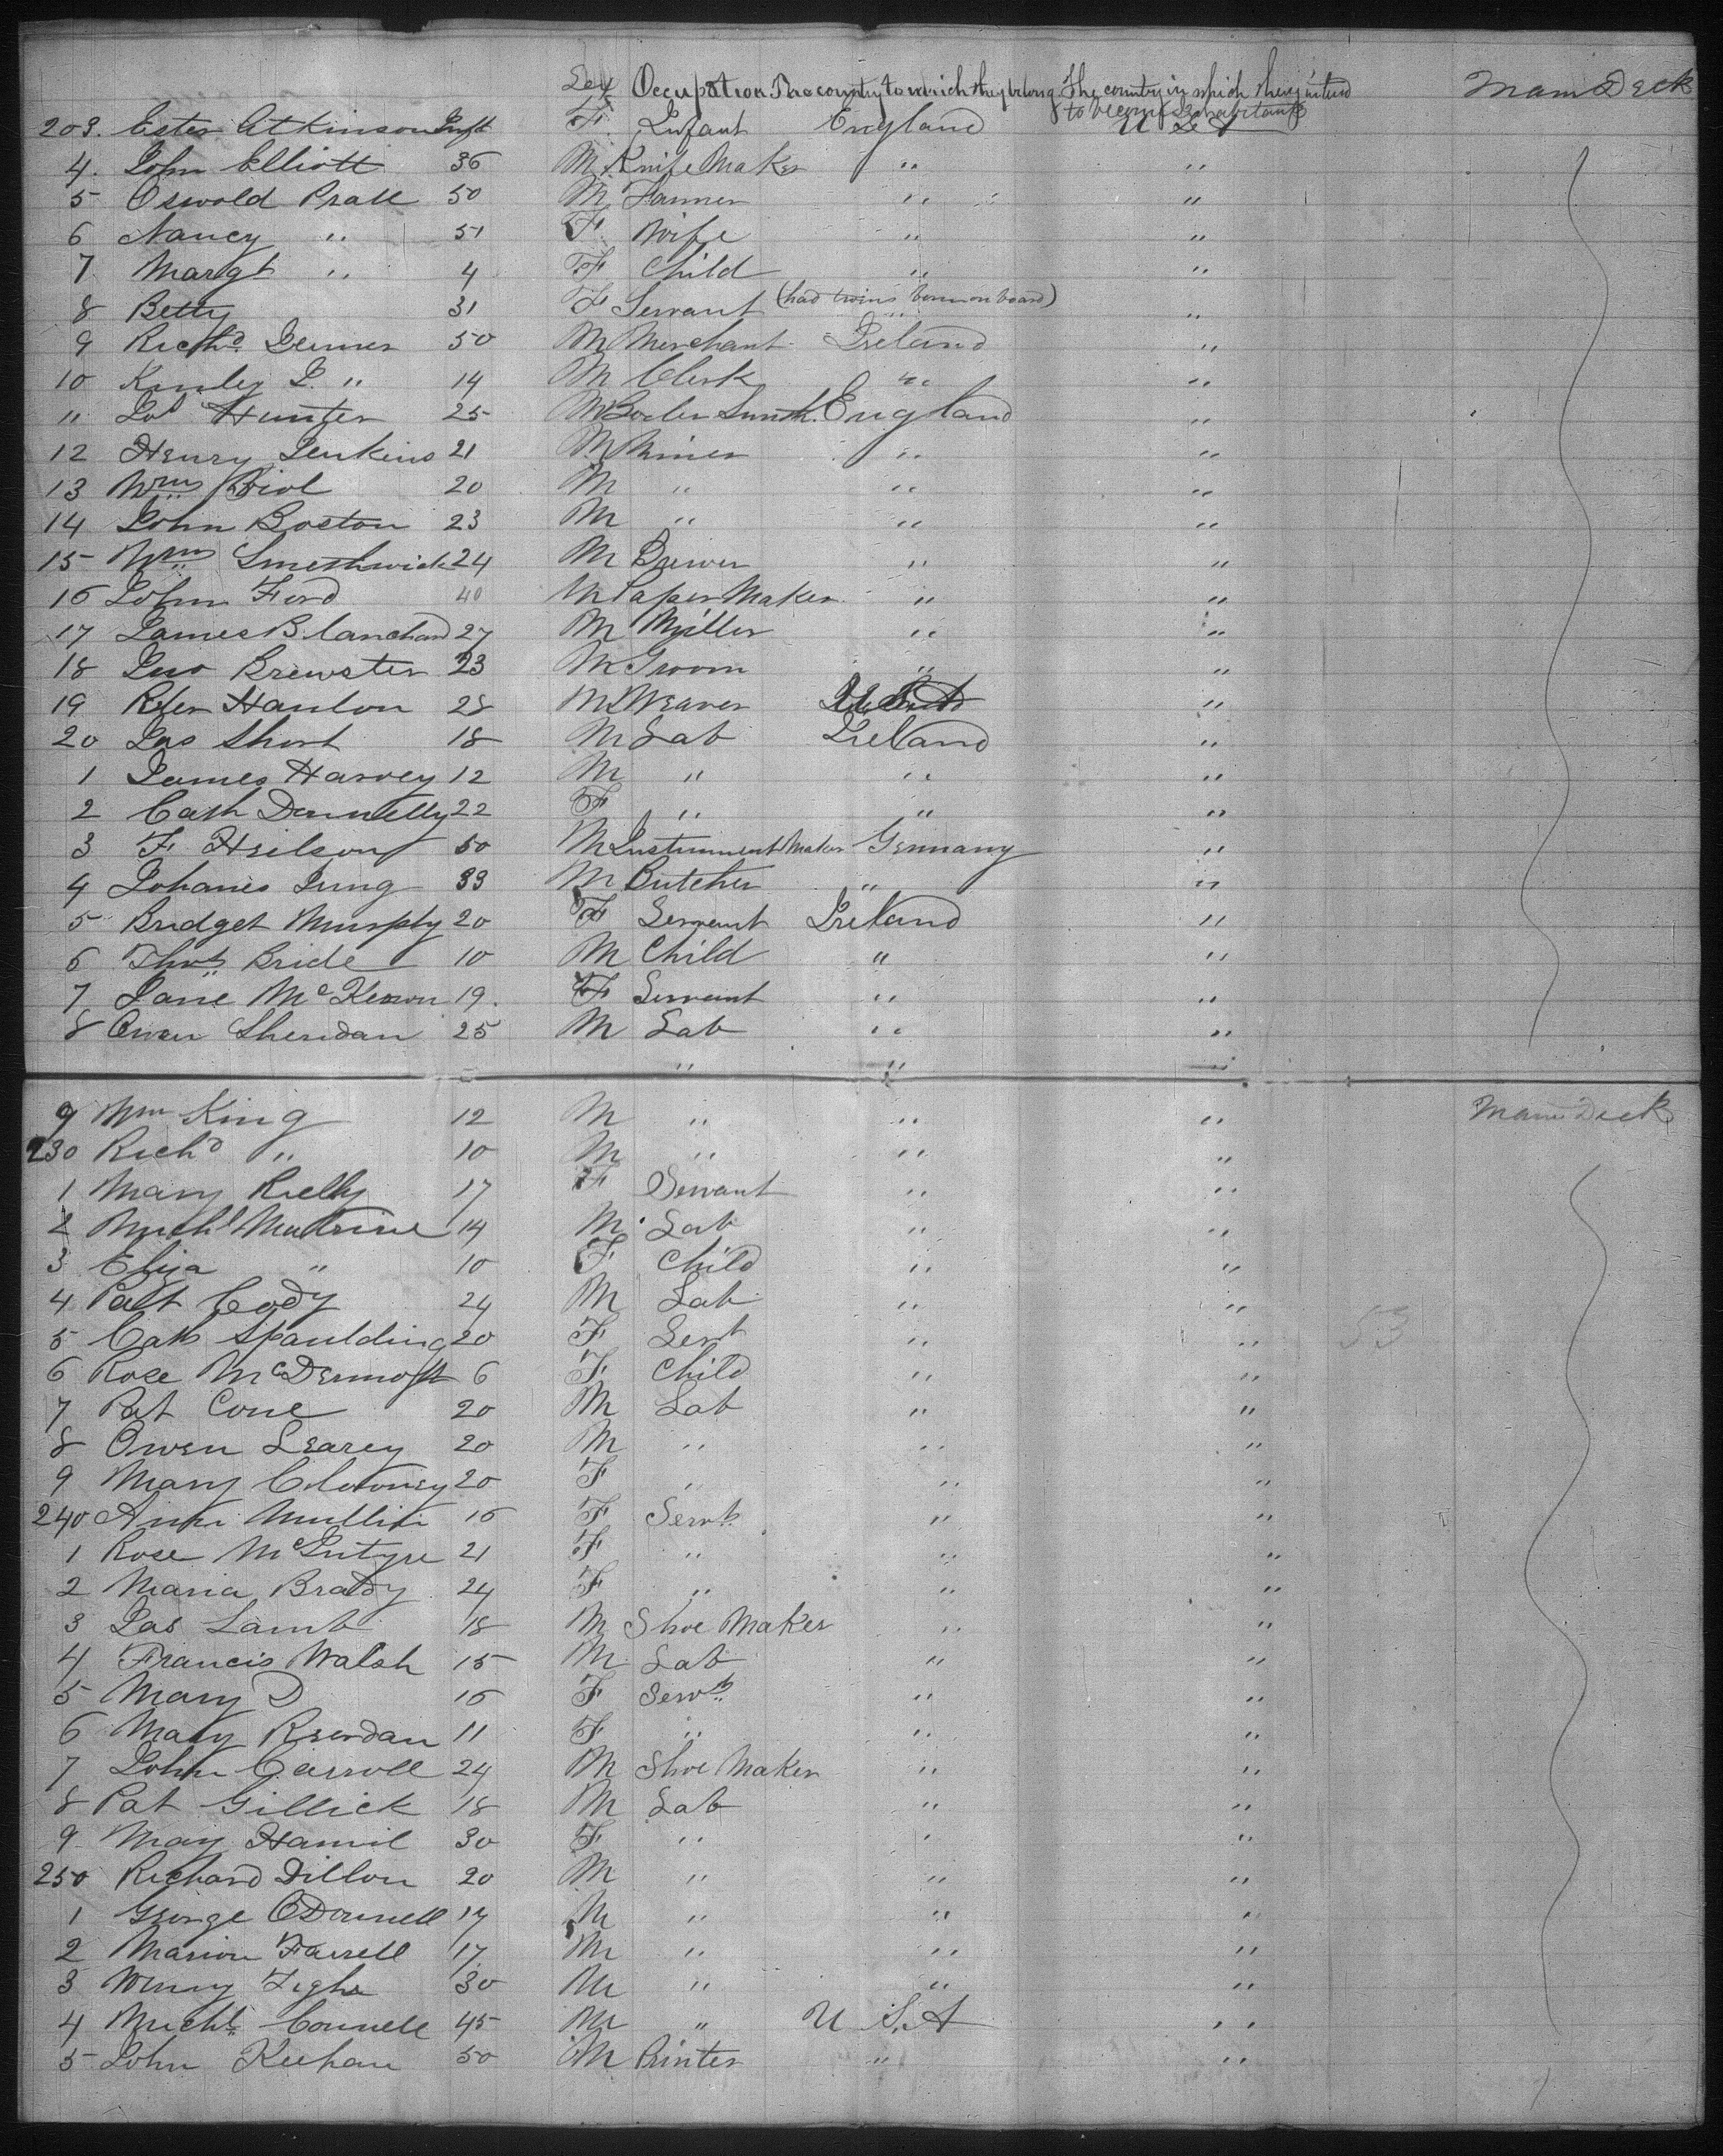 Sex Occupation The country to which they belong The country in which they intend Main Deck
to become inhabitants
203. Ester Atkinson Inft F. Infant England U S A
4. John Elliott 36 M Knife Maker " "
5 Oswold Pratt 50 M Farmer " "
6 Nancy " 51 F. Wife " "
7 Margt " 4 F Child " "
8 Betty 31 F Servant (had twins born on board) " "
9 Richd 50 M Merchant Ireland "
10 " 14 M Clerk " "
11 Hunter 25 M England "
12 Henry Jenkins 21 M Miner " "
13 Wm 20 M " " "
14 John Boston 23 M " " "
15 Wm Smethwick 24 M Brewer " "
16 John Ford 40 M Paper Maker " "
17 James Blanchard 27 M Miller " "
18 Jno Brewster 23 M Groom " "
19 Peter Hanlon 28 M Weaver "
20 Jas Short 18 M Lab Ireland "
1 James Harvey 12 M " " "
2 Cath Donnelly 22 F " " "
3 F Heilson 50 M Instrument Maker Germany "
4 Johanes Jung 33 M Butcher " "
5 Bridget Murphy 20 F Servant Ireland "
6 Thos Bride 10 M Child " "
7 Jane McKeown 19. F Servant " "
8 Owen Sheridan 25 M Lab " "
" " "
9 Wm King 12 M " " " Main Deck
230 Richd " 10 M " " "
1 Mary Reilly 17 F Servant " "
2 Michl 14 M Lab " "
3 Eliza " 10 F Child " "
4 Patt Cody 24 M Lab " "
5 Cath Spaulding 20 F Servt " " 53
6 Rose McDermott 6 F Child " "
7 Pat Cone 20 M Lab " "
8 Owen Learey 20 M " " "
9 Mary 20 F " " "
240 Ann Mullin 16 F Servt. " "
1 Rose McIntyre 21 F " " "
2 Maria Brady 24 F " " "
3 Jas Lamb 18 M Shoe Maker " "
4 Francis Walsh 15 M Lab " "
5 Mary D 16 F Servt. " "
6 Mary Reardan 11 F " " "
7 John Carroll 24 M Shoe Maker " "
8 Pat Gillick 18 M Lab " "
9 May Hamil 30 F " " "
250 Richard Dillon 20 M " " "
1 George O'Donnell 17 M " " "
2 Marion Farrell 17 M " " "
3 Tighe 30 M " " "
4 Michl. Connell 45 M " U S. A "
5 John Keehan 50 M Printer " "